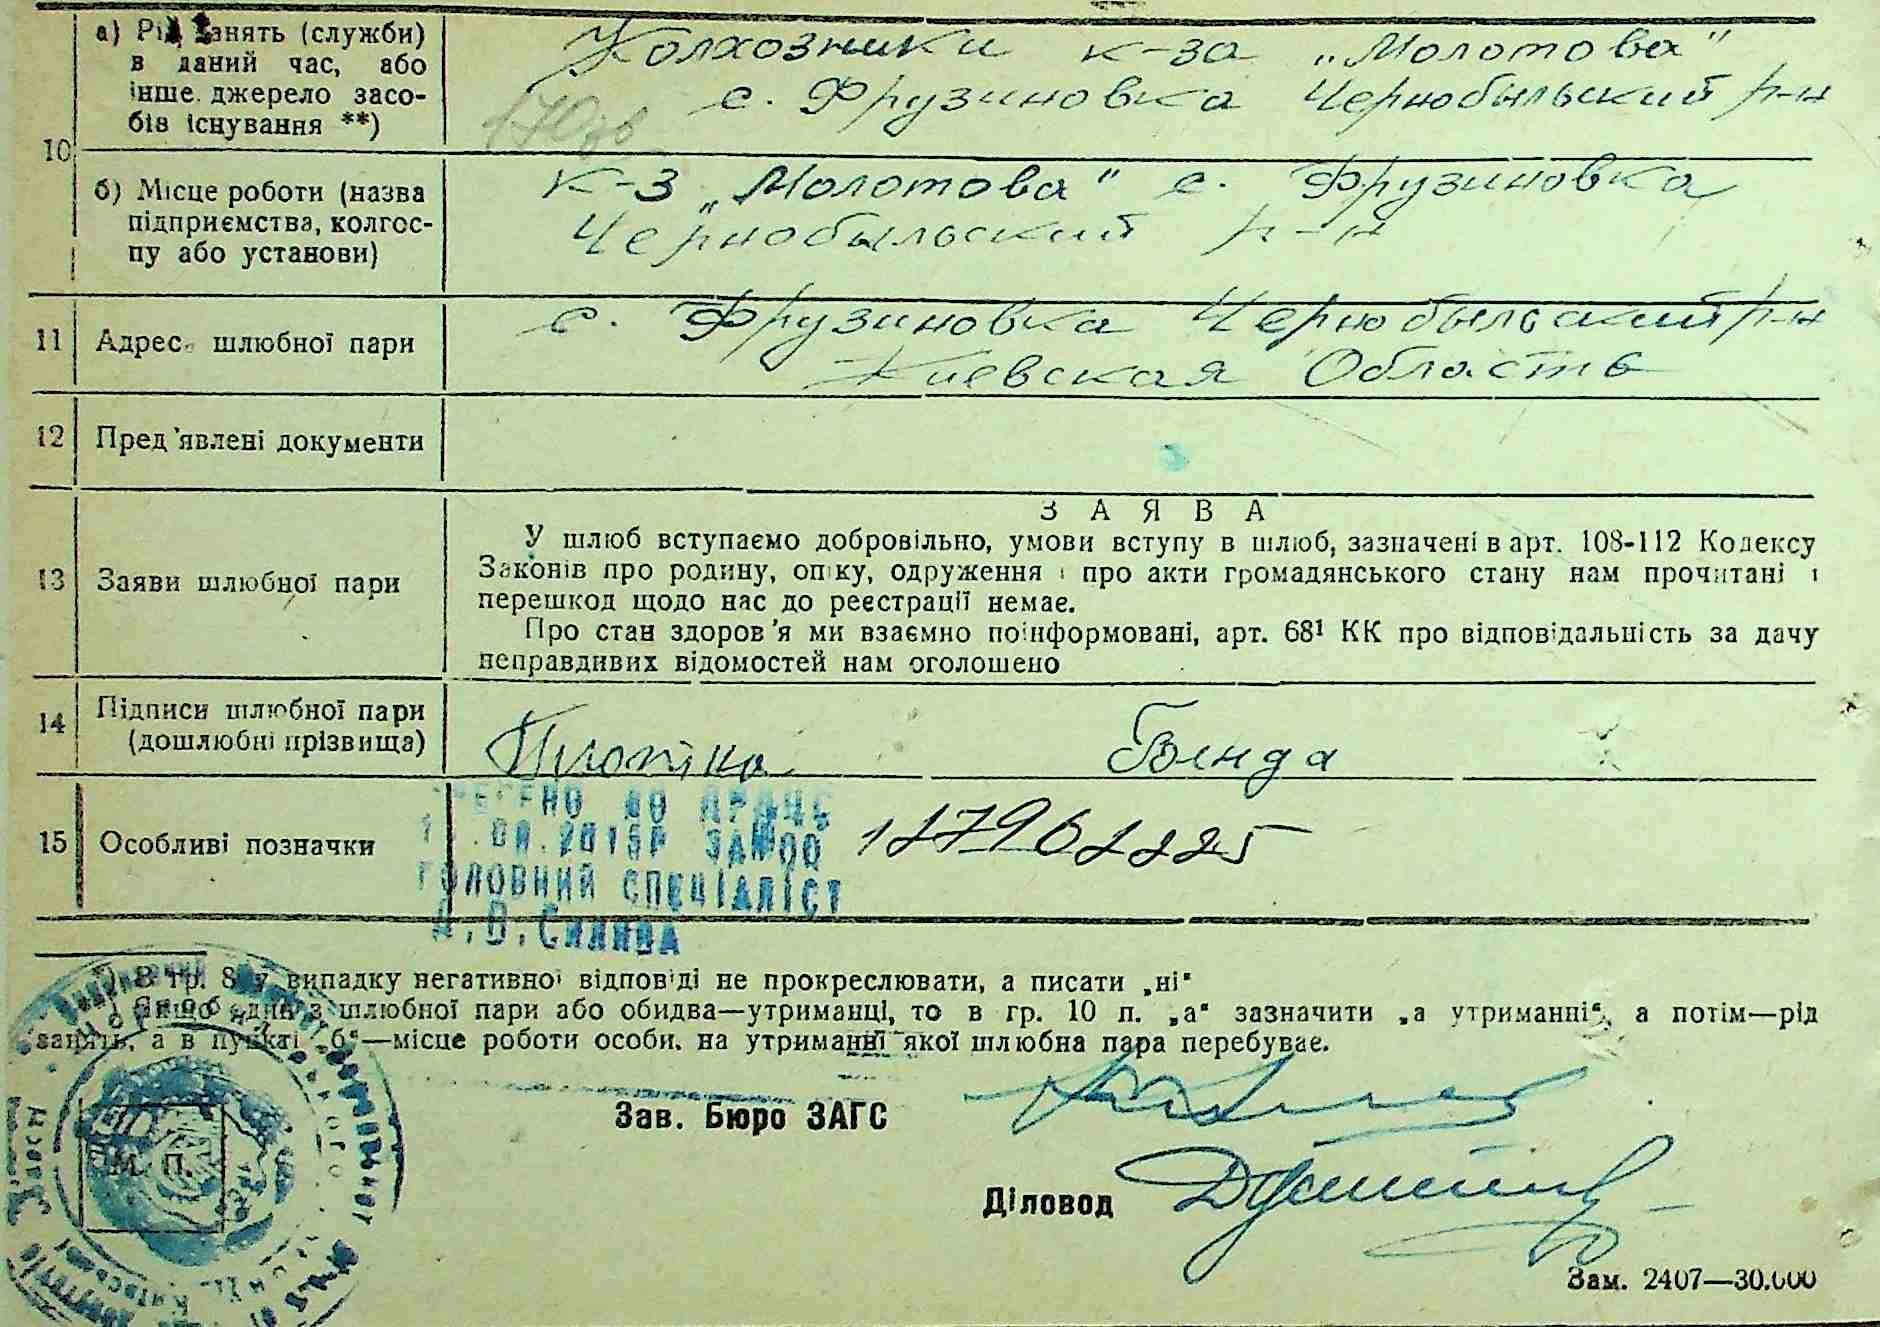 10
а) занять (служби)
в даний час, або
інше джерело засо-
бів існування **)
Колхозники к-за „Молотова"
с. Фрузиновка Чернобыльский р-н
б) Місце роботи (назва
підприємства, колгос-
пу або установи)
к-з „Молотова" с. Фрузиновка
Чернобыльский р-н
11 Адрес шлюбної пари
с. Фрузиновка Чернобыльский р-н
Киевская Область
12 Пред'явлені документи
13 Заяви шлюбної пари
ЗАЯВА
У шлюб вступаємо добровільно, умови вступу в шлюб, зазначені в арт. 108-112 Кодексу
Законів про родину, опіку, одруження і про акти громадянського стану нам прочитані і
перешкод щодо нас до реєстрації немає.
Про стан здоров'я ми взаємно поінформовані, арт. 68¹ КК про відповідальність за дачу
неправдивих відомостей нам оголошено
14 Підписи шлюбної пари
(дошлюбні прізвища)
Бенда
15 Особливі позначки
ДО ДРАЦС
ЗА №00
ГОЛОВНИЙ СПЕЦІАЛІСТ
В гр. 8 у випадку негативної відповіді не прокреслювати, а писати „ні"
Якщо один з шлюбної пари або обидва—утриманці, то в гр. 10 п. „а" зазначити „а утриманні", а потім—рід
занять, а в пункті „б"—місце роботи особи, на утриманні якої шлюбна пара перебуває.
Зав. Бюро ЗАГС
М. П.
Діловод
Зам. 2407—30.000